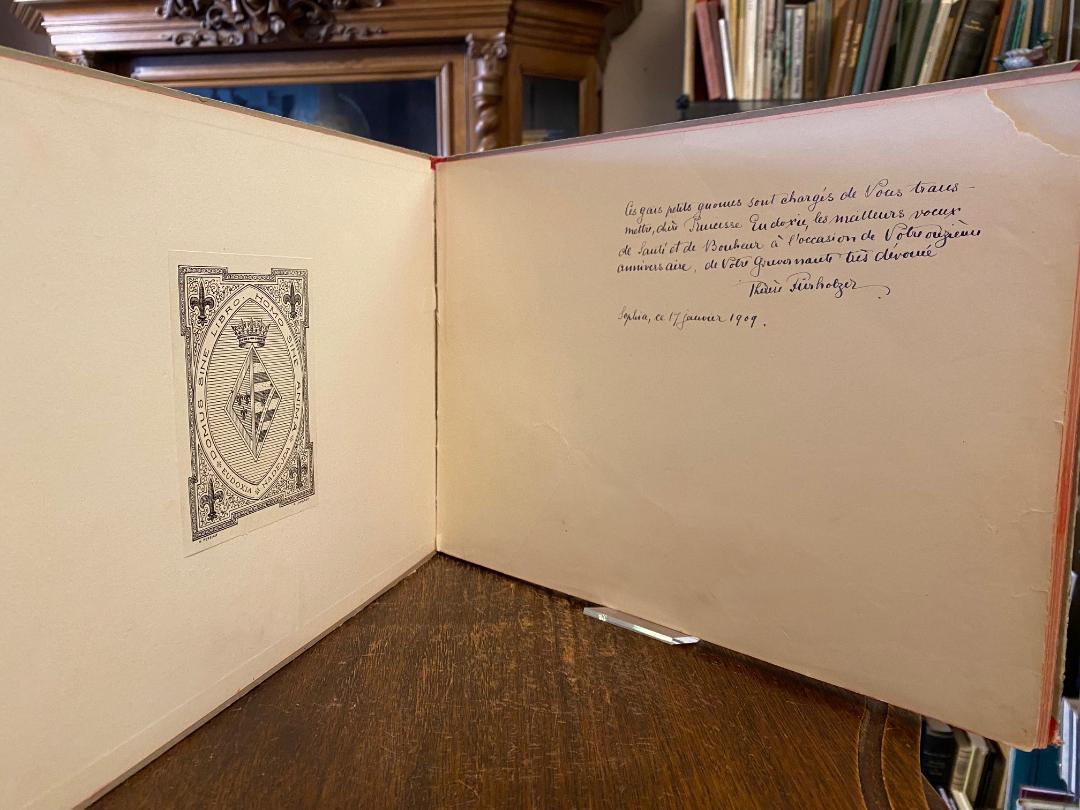 DOMUS SINE LIBRO: HOMO SINE ANIMA
EUDOXIA
Ces gais petits gnomes sont chargés de Vous trans-
mettre, chère Princesse Eudoxie, les meilleurs voeux
de Santé et de Bonheur à l'occasion de Votre onzième
anniversaire, de Votre Gouvernante très dévouée
Thérèse
Sophia, ce 17 janvier 1909.